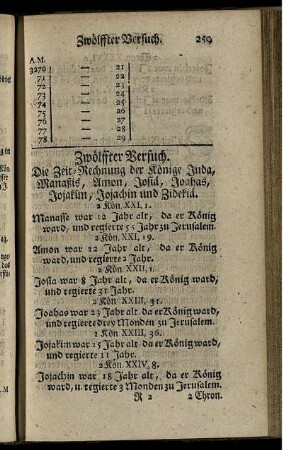 Zwölffter Versuch. 259
A.M.
3270 — 21
71 — 22
72 — 23
73 — 24
74 — 25
75 — 26
76 — 27
77 — 28
78 — 29
Zwölffter Versuch.
Die Zeit-Rechnung der Könige Juda,
Manaßis, Amon, Josiä, Joahas,
Jojakim, Jojachin und Zidekiä.
2 Kön. XXI, 1.
Manasse war 12 Jahr alt, da er König
ward, und regierte 55 Jahr zu Jerusalem.
2 Kön. XXI, 19.
Amon war 22 Jahr alt, da er König
ward, und regierte 2 Jahr.
2 Kön. XXII, 1.
Josia war 8 Jahr alt, da er König ward,
und regierte 31 Jahr.
2 Kön. XXIII, 31.
Joahas war 23 Jahr alt da er König ward,
und regierte drey Monden zu Jerusalem.
2 Kön. XXIII, 36.
Jojakim war 25 Jahr alt, da er König ward,
und regierte 11 Jahr.
2 Kön. XXIV, 8.
Jojachin war 18 Jahr alt, da er König
ward, u. regierte 3 Monden zu Jerusalem.
R 2 2 Chron.